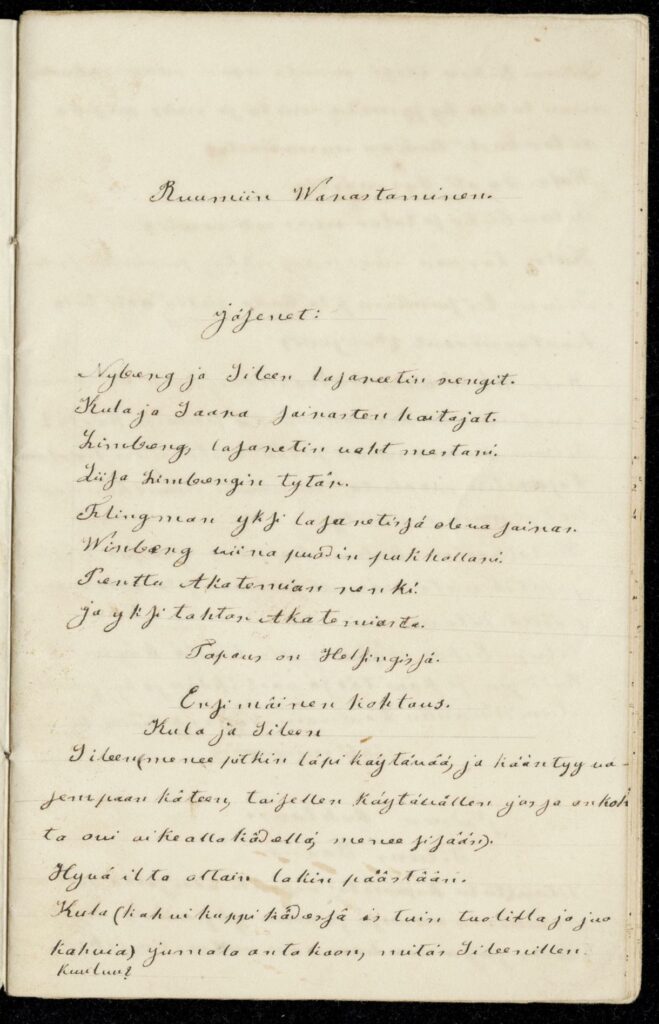 Ruumiin Warastaminen.
Jäsenet:
Nyberg ja Sileen lasareetin rengit.
Kula ja Saara sairasten hoitajat.
Limberg, lasaretin vahtmestari.
Liisa Limbergin tytär.
Flingman yksi lasaretissä oleva sairas.
Winberg viina puodin pukhollari.
Perttu Akatemian renki.
ja yksi tohtori Akatemiasta.
Tapaus on Helsingissä.
Ensimäinen kohtaus.
Kula ja Sileen
Sileen (menee pitkin läpi käytävää, ja kääntyy va-
sempaan käteen, toisellen käytävällen jossa on koh
ta ovi oikealla kädellä, menee sisään).
Hyvä ilta ottain lakin päästään.
Kula (kahvi kuppi kädessä istuin tuolilla ja juo
kahvia) jumala antakoon, mitäs Sileenillen
kuuluu?